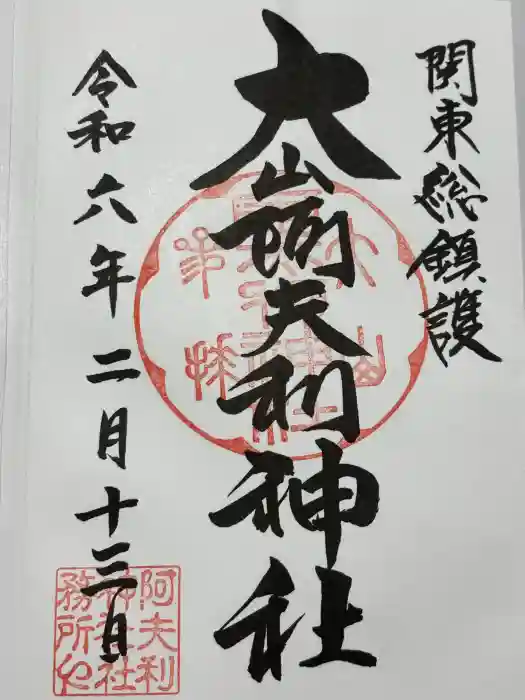 関東総鎮護
大山阿夫利神社
令和六年二月十三日
阿夫利
神社社
務所印